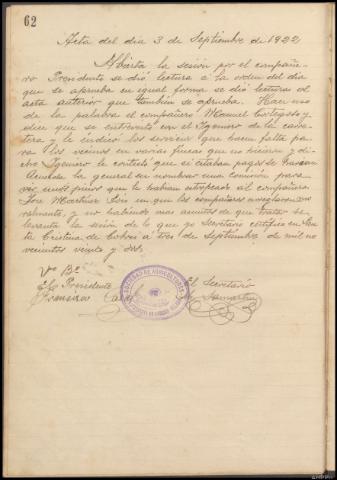 62
Acta del dia 3 de Septiembre de 1922
Abierta la sesión por el compañe-
ro Presidente se dió lectura a la orden del dia
que se aprueba en igual forma se dió lectura al
acta anterior que tambien se aprueba. Hace uso
de la palabra el compañero Manuel y
dice que se entrevistó con el Ingeniero de la carre-
tera y le indicó los servicios que hacen falta pa-
ra los vecinos en varias fincas que no hicieron y di-
cho Igeniero le contestó que si estaban pagos se
Acuerda la general en nombrar una comisión para
ver unos pinos que le habian al compañero
Jose Martinez Son un que los compañeros
, y no habiendo mas asuntos de que tratar se
levanta la sesión de lo que yo Secretario certifico en San-
ta Cristina de Cobres a tres de Septiembre de mil no-
vecientos veinte y dos.
Vº Bº
El Presidente
Francisco
El Secretario
SOCIEDAD DE AGRICULTORES